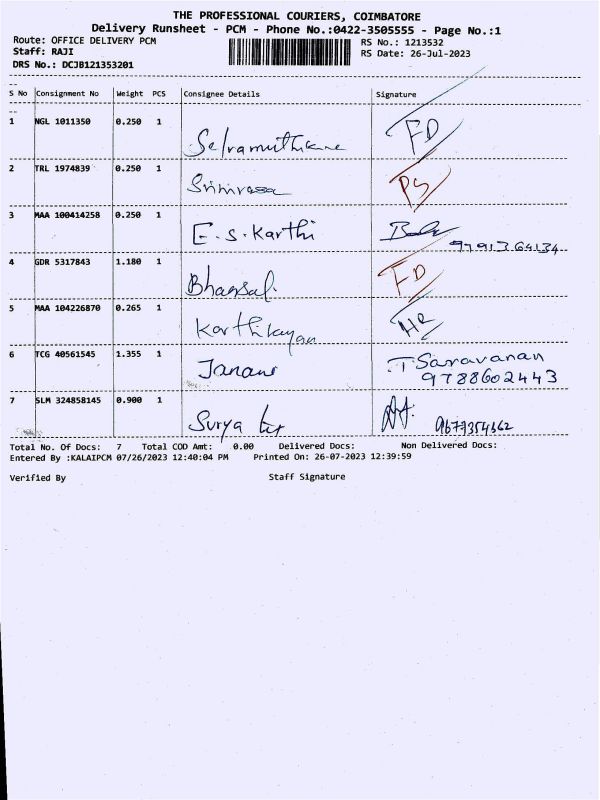 THE PROFESSIONAL COURIERS, COIMBATORE
Delivery Runsheet - PCM - Phone No.:0422-3505555 - Page No.:1
Route: OFFICE DELIVERY PCM RS No.: 1213532
Staff: RAJI RS Date: 26-Jul-2023
DRS No.: DCJB121353201
S No Consignment No Weight PCS Consignee Details Signature
1 NGL 1011350 0.250 1 FD
2 TRL 1974839 0.250 1 Srinivasa PS
3 MAA 100414258 0.250 1 E.S.Karthi
4 GDR 5317843 1.180 1 FD
5 MAA 104226870 0.265 1 Karthikayan HR
6 TCG 40561545 1.355 1 T Saravanan
9788602443
7 SLM 324858145 0.900 1 Surya
Total No. Of Docs: 7 Total COD Amt: 0.00 Delivered Docs: Non Delivered Docs:
Entered By :KALAIPCM 07/26/2023 12:40:04 PM Printed On: 26-07-2023 12:39:59
Verified By Staff Signature